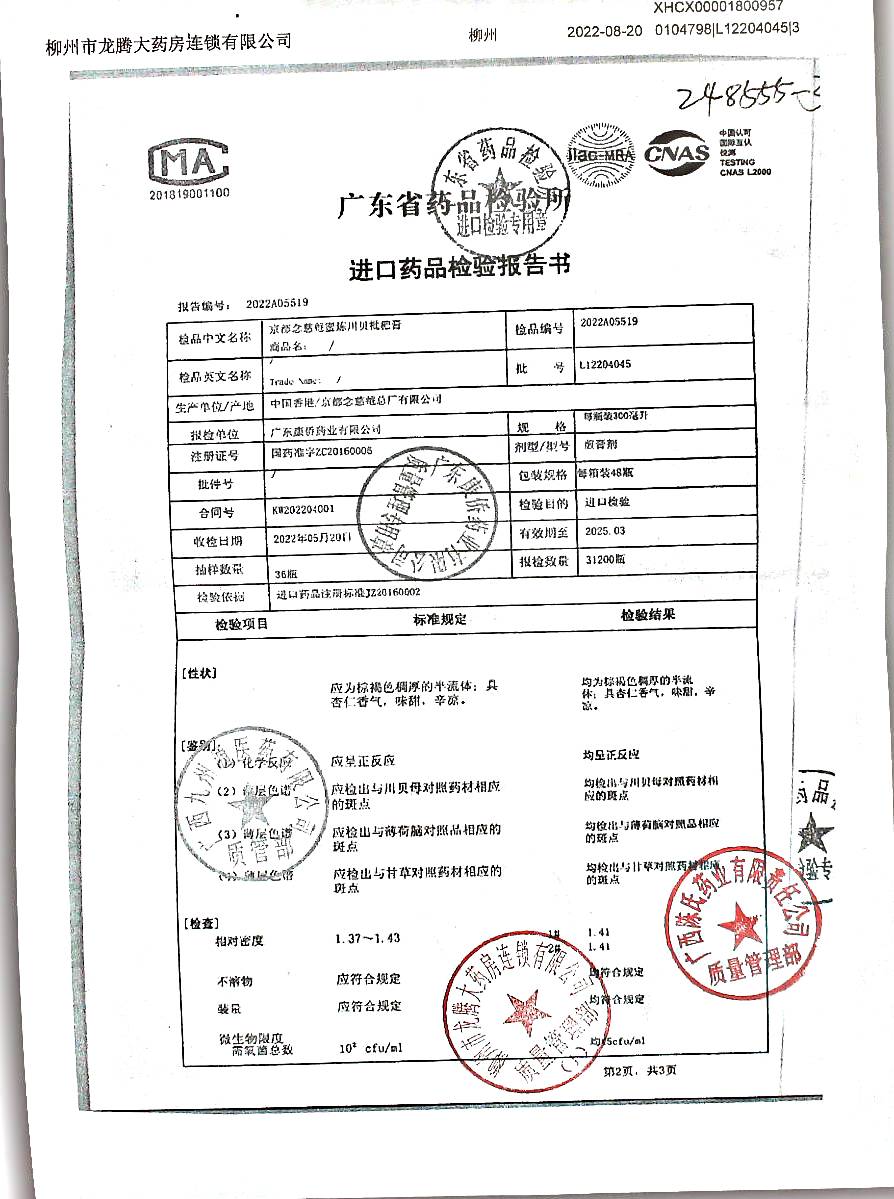 XHCX00001800957
柳州市龙腾大药房连锁有限公司
柳州
2022-08-20 0104798|L12204045|3
248555-
MA
201819001100
ilac-MRA
CNAS
中国认可
国际互认
检测
TESTING
CNAS L2000
广东省药品检验所
进口检验专用章
进口药品检验报告书
报告编号: 2022A05519
检品中文名称 京都念慈菴蜜炼川贝枇杷膏 检品编号 2022A05519
商品名: /
检品英文名称 / 批 号 L12204045
Trade Name: /
生产单位/产地 中国香港/京都念慈菴总厂有限公司
报检单位 广东康侨药业有限公司 规 格 每瓶装300毫升
注册证号 国药准字ZC20160006 剂型/型号 煎膏剂
批件号 / 包装规格 每箱装48瓶
合同号 KW202204001 检验目的 进口检验
收检日期 2022年05月20日 有效期至 2025.03
抽样数量 36瓶 报检数量 31200瓶
检验依据 进口药品注册标准JZ20160002
检验项目 标准规定 检验结果
[性状]
应为棕褐色稠厚的半流体; 具 均为棕褐色稠厚的半流
杏仁香气, 味甜, 辛凉。 体; 具杏仁香气, 味甜, 辛
凉。
[鉴别]:
(1) 化学反应 应呈正反应 均呈正反应
(2) 薄层色谱 应检出与川贝母对照药材相应 均检出与川贝母对照药材相
的斑点 应的斑点
(3) 薄层色谱 应检出与薄荷脑对照品相应的 均检出与薄荷脑对照品相应
斑点 的斑点
(4) 薄层色谱 应检出与甘草对照药材相应的 均检出与甘草对照药材相应
斑点 的斑点
[检查]
相对密度 1.37~1.43 1# 1.41
2# 1.41
不溶物 应符合规定 均符合规定
装量 应符合规定 均符合规定
微生物限度
需氧菌总数 10² cfu/ml 均<5cfu/ml
第2页, 共3页
广东康侨药业有限公司
质量管理专用章
广西九州通医药有限公司
质管部
广西陈氏药业有限责任公司
质量管理部
柳州市龙腾大药房连锁有限公司
质量管理部
(1)